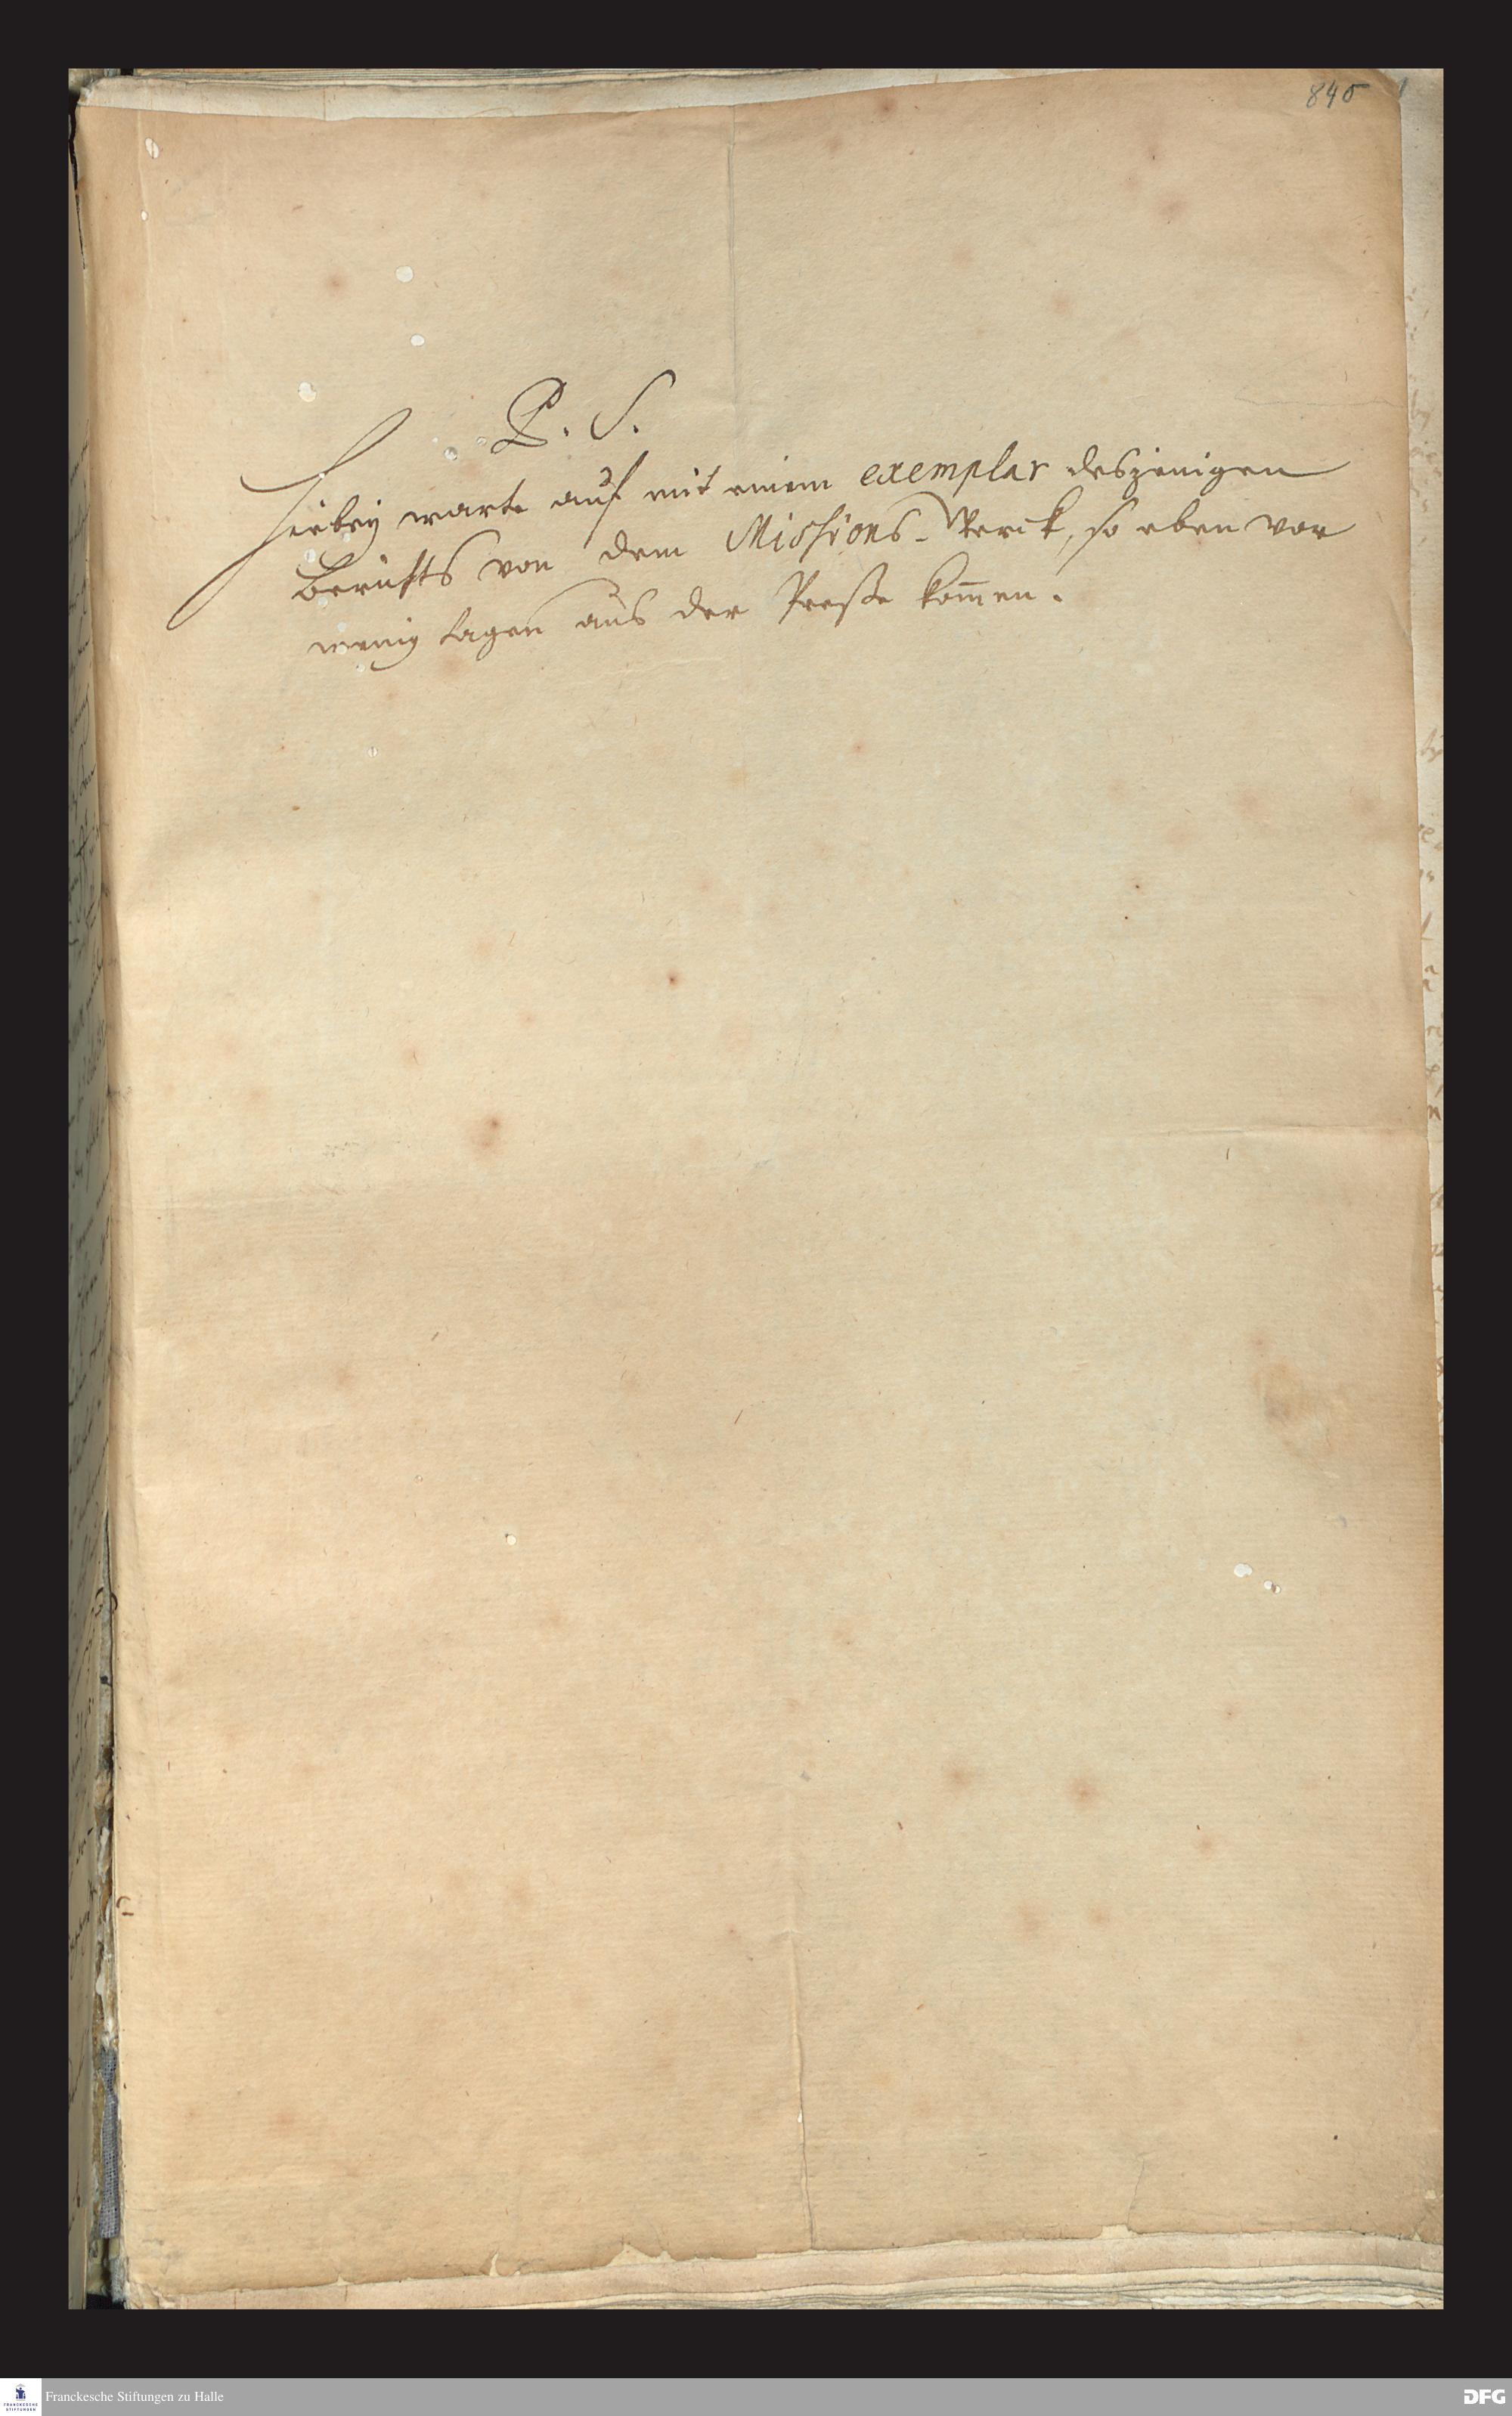 845
P. S.
Hiebey warte auf mit einem exemplar desjenigen
Berichts von dem Missions-Werck, so eben vor
wenig tagen aus der Preße kom̄en.
Franckesche Stiftungen zu Halle
FRANCKESCHE
STIFTUNGEN
DFG